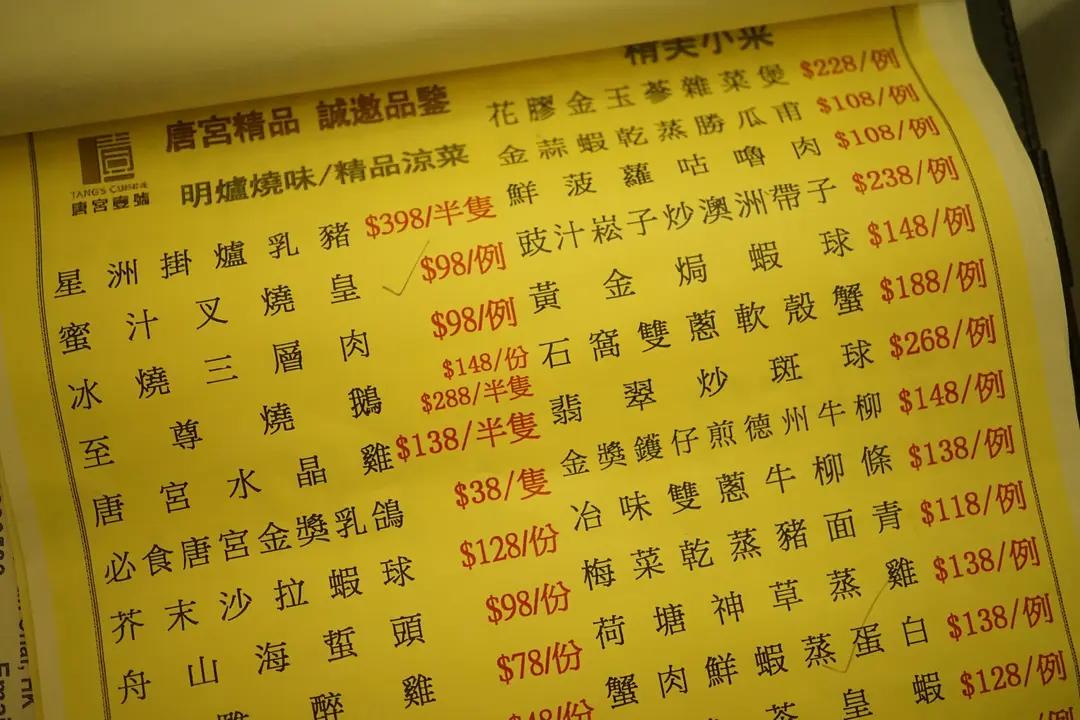 唐宮精品 誠邀品鑒
TANG'S CUISINE
唐宮壹號
明爐燒味/精品涼菜
星洲掛爐乳豬 $398/半隻
蜜汁叉燒皇 $98/例
冰燒三層肉 $98/例
至尊燒鵝 $148/份
$288/半隻
唐宮水晶雞 $138/半隻
必食唐宮金獎乳鴿 $38/隻
芥末沙拉蝦球 $128/份
舟山海蜇頭 $98/份
醉雞 $78/份
精美小菜
花膠金玉蔘雜菜煲 $228/例
金蒜蝦乾蒸勝瓜甫 $108/例
鮮菠蘿咕嚕肉 $108/例
豉汁崧子炒澳洲帶子 $238/例
黃金焗蝦球 $148/例
石窩雙蔥軟殼蟹 $188/例
翡翠炒斑球 $268/例
金獎鑊仔煎德州牛柳 $148/例
冶味雙蔥牛柳條 $138/例
梅菜乾蒸豬面青 $118/例
荷塘神草蒸雞 $138/例
蟹肉鮮蝦蒸蛋白 $138/例
皇蝦 $128/例